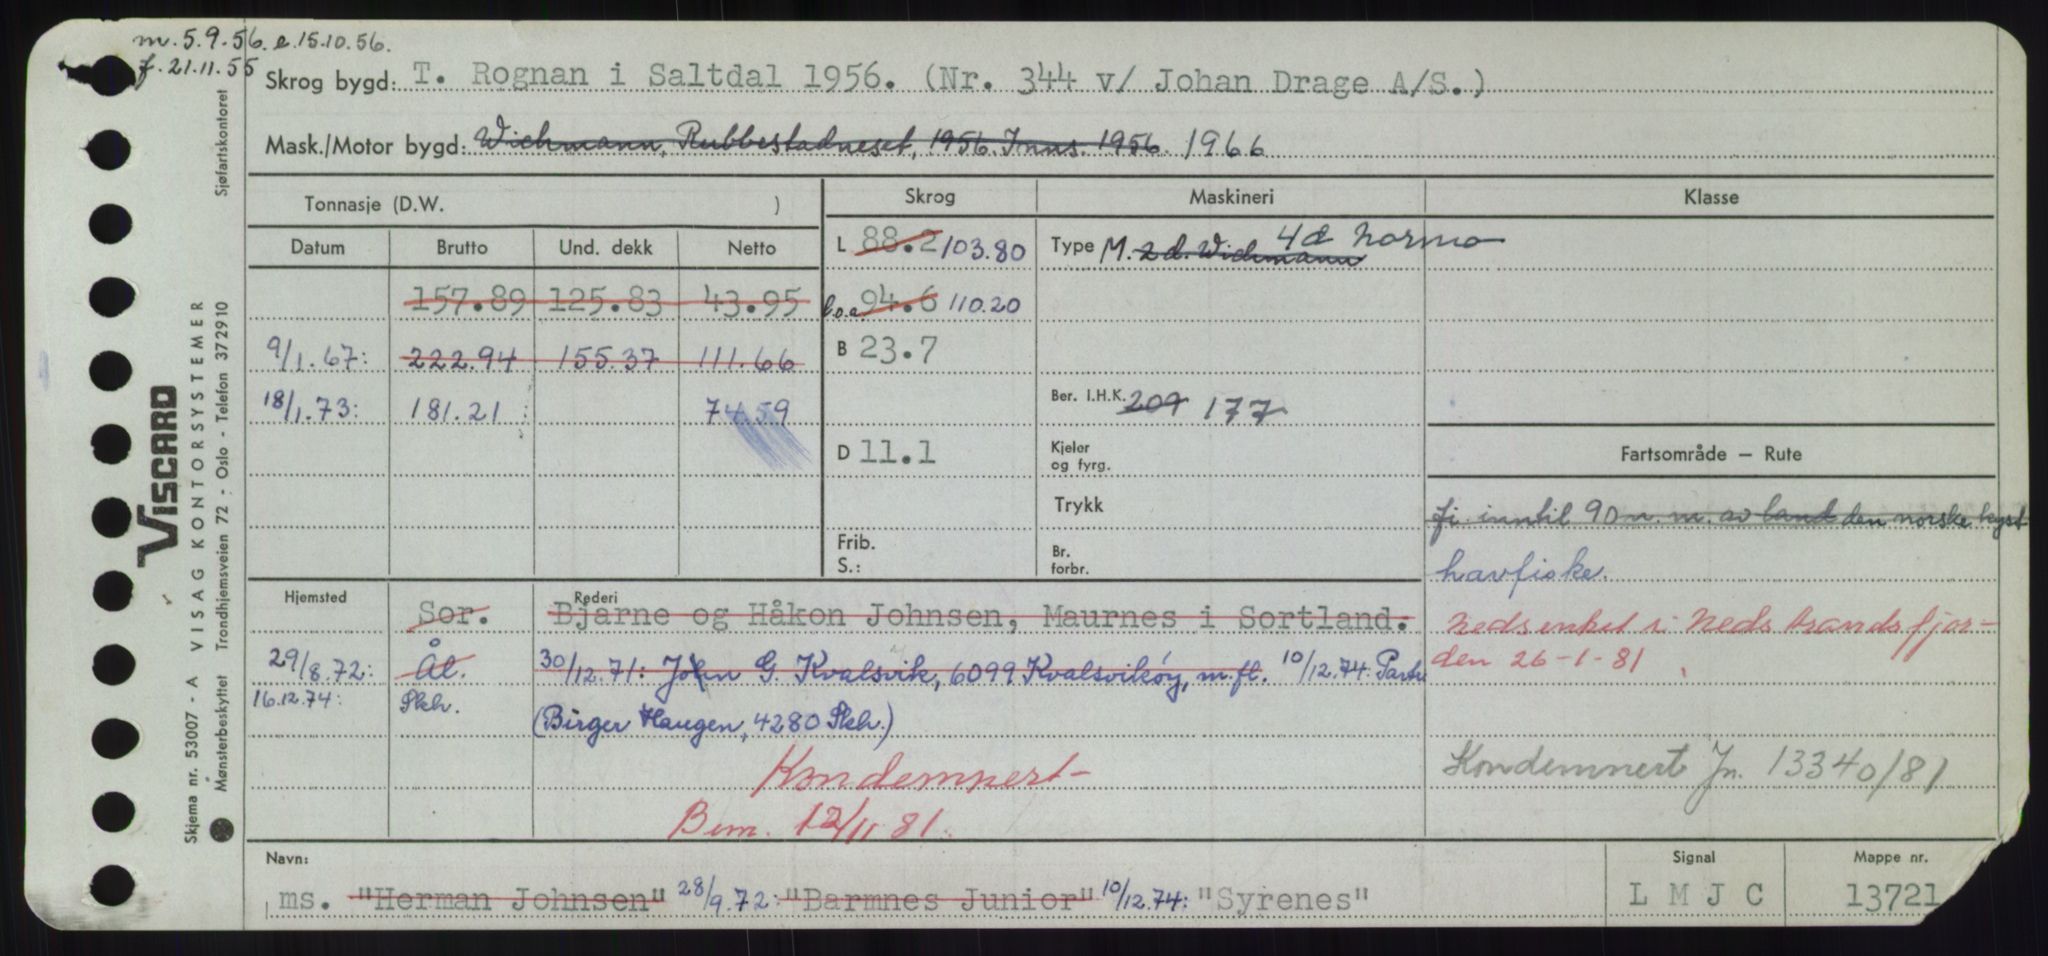 m. 5.9.56. e. 15.10.56.
f. 21.11.55
Skrog bygd: T. Rognan i Saltdal 1956. (Nr. 344 v/ Johan Drage A/S.)
Mask./Motor bygd: Wichmann, Rubbestadneset, 1956. Inns. 1956. 1966
Tonnasje (D.W. )
Skrog Maskineri Klasse
Datum Brutto Und. dekk Netto
L 88.2 103.80
Type M. 2 d. Wichmann 4d Normo
157.89 125.83 43.95
l.o.a. 94.6 110.20
9/1.67: 222.94 155.37 111.66
B 23.7
18/1.73: 181.21 74.59
Ber. I.H.K. 209 177
D 11.1
Kjeler og fyrg.
Trykk
Frib.
S.:
Br. forbr.
Fartsområde – Rute
fi. inntil 90 n. m. av land den norske kyst
havfiske.
Nedsenket i Nedstrandsfjor-
den 26-1-81
Kondemnert Jn. 13340/81
Hjemsted Rederi
Sor. Bjarne og Håkon Johnsen, Maurnes i Sortland.
29/8.72: Ål. 30/12.71: John G. Kvalsvik, 6099 Kvalsvikøy, m.fl. 10/12.74: Partr
16.12.74: Skh. (Birger Haugen, 4280 Skh.)
Kondemnert-
Bem. 12/11 81.
Navn: Signal Mappe nr.
ms. "Herman Johnsen" 28/9.72: "Barmnes Junior" 10/12.74: "Syrenes" L M J C 13721
VISCARD
Skjema nr. 53007 - A VISAG KONTORSYSTEMER
Mønsterbeskyttet Trondhjemsveien 72 - Oslo - Telefon 372910
Sjøfartskontoret